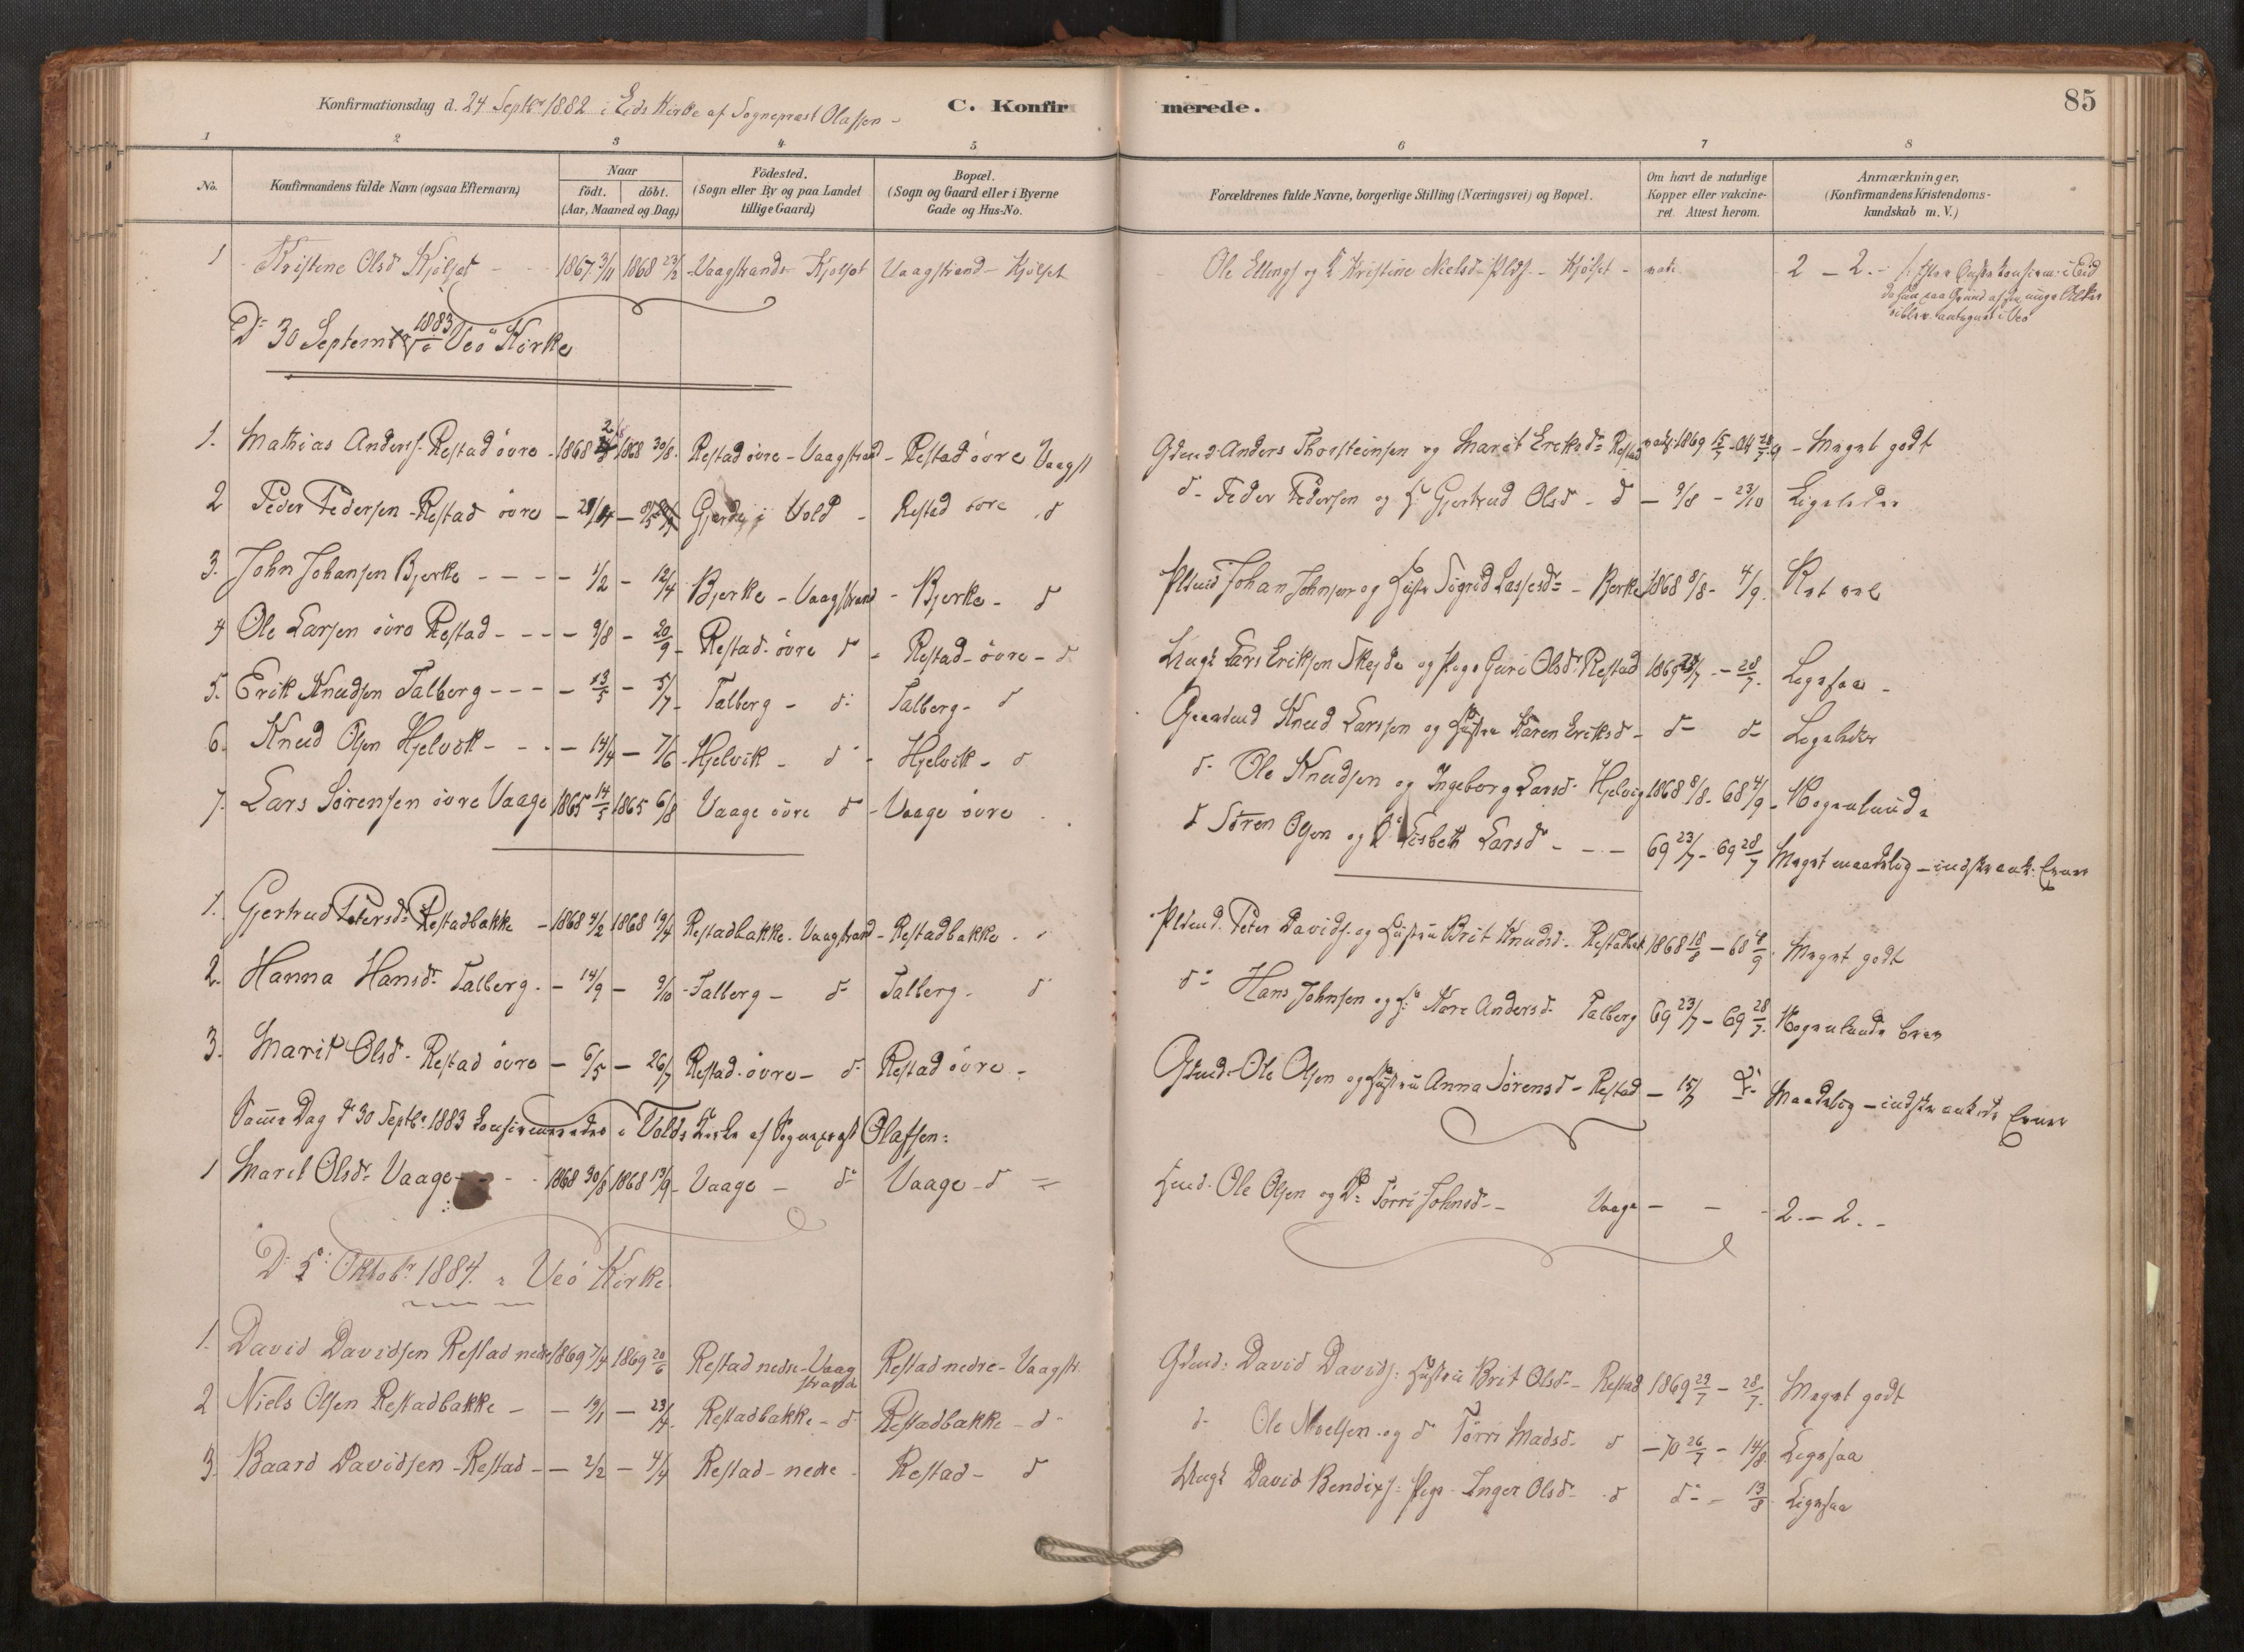 85
Konfirmationsdag d. 24 Septbr 1882 i Eids Kirke af Sognepræst Olafsen -
C. Konfirmerede.
1 2 3 4 5 6 7 8
No.
Konfirmandens fulde Navn (ogsaa Efternavn)
Naar
födt. döbt.
(Aar, Maaned og Dag.)
Födested.
(Sogn eller By og paa Landet
tillige Gaard)
Bopæl.
(Sogn og Gaard eller i Byerne
Gade og Hus-No.
Forældrenes fulde Navne, borgerlige Stilling (Næringsvei) og Bopæl.
Om havt de naturlige
Kopper eller vakcine-
ret. Attest herom.
Anmærkninger.
(Konfirmandens Kristendoms-
kundskab m. V.)
1 Kristine Olsd Kjölset - 1867 3/11 1868 23/2 Vaagstrand - Kjölset Vaagstrand - Kjölset Ole Ellings og Kristine Nielsd - Kjölset - 2 - 2 -
D 30 September 1883 i Veö Kirke
1. Mathias Anders. Restad övre - 1868 1868 30/8 Restad övre - Vaagstrand - Restad övre Vaagst Gdmd Anders Thorsteinsen og Marit Eriksd Restad 1869 15/7 - Meget godt
2 Peder Pedersen - Restad övre - Gjerde i Vold - Restad övre d d - Peder Pedersen og Gjertrud Olsd - d - 9/8 - 23/10 Ligeledes
3. John Johansen Bjerke - - - 1/2 - 12/4 Bjerke - Vaagstrand - Bjerke - d Plmd Johan Johnsen og Hustru Sigrid Lassesd - Bjerke 1868 8/8 - 4/9 Ret vel
4 Ole Larsen övre Restad - - - 9/8 - 20/9 - Restad övre d - Restad - övre - d Ungk Lars Eriksen Skejde og Pige Guri Olsd Restad 1869 28/7 Ligesaa -
5. Erik Knudsen Talberg - - - 13/5 - 5/7 - Talberg - d Talberg - d Gaardmd Knud Larssen og Hustru Karen Eriksd - d - d Ligeledes
6. Knud Olsen Hjelvik - - - 14/4 - 7/6 - Hjelvik - d - Hjelvik - d d - Ole Knudsen og Ingeborg Larsd - Hjelvig 1868 8/8 - 68 4/9 - Nogenlunde
7. Lars Sörensen övre Vaage 1865 14/5 1865 6/8 Vaage övre d - Vaage övre d Sören Olsen og Lisbeth Larsd - - - 69 23/7 - 69 28/7 Meget maadelig - indskrænk. Evner
1. Gjertrud Petersd Restadbakke - 1868 4/2 1868 19/4 Restadbakke - Vaagstrand - Restadbakke Plmd. Peter Davids. og Hustru Brit Knudsd - Restadbak 1868 18/8 - 68 4/9 Meget godt
2. Hanna Hansd Talberg - - 14/9 - 9/10 - Talberg - d Talberg - d d Hans Johnsen og Kare Andersd Talberg 69 23/7 - 69 28/7 Nogenlunde
3. Marit Olsd - Restad övre - 6/5 - 26/7 Restad övre - d Restad övre - Gdmd Ole Olsen og Hustru Anna Sörensd - Restad - 15/7 Maadelig - indskrænkede Evner
Samme Dag d 30 Septbr 1883 konfirmeredes i Volds Kirke af Sognepræst Olafsen:
1 Marit Olsd Vaage - - 1868 30/8 1868 13/9 - Vaage - d Vaage - d Ole Olsen og Torri Johnsd - Vaage - - - 2 - 2 -
D 5 Oktobr 1884 i Veö Kirke.
1. David Davidsen Restad nedre 1869 7/4 1869 20/6 Restad nedre - Vaagstrand Restad nedre - Vaagstr Gdmd: David Davids: Hustru Brit Olsd - Restad 1869 29/7 - 28/7 Meget godt
2 Niels Olsen Restadbakke - - 19/1 - 23/4 - Restadbakke - d Restadbakke - d d Ole Nielsen og d Torri Madsd d - 70 26/7 - 14/8 Ligesaa
3. Baard Davidsen - Restad - - 2/2 - 4/4 Restad - nedre - Restad - d Ungk David Bendixs: Pige Inger Olsd - d d - 13/8 Ligesaa